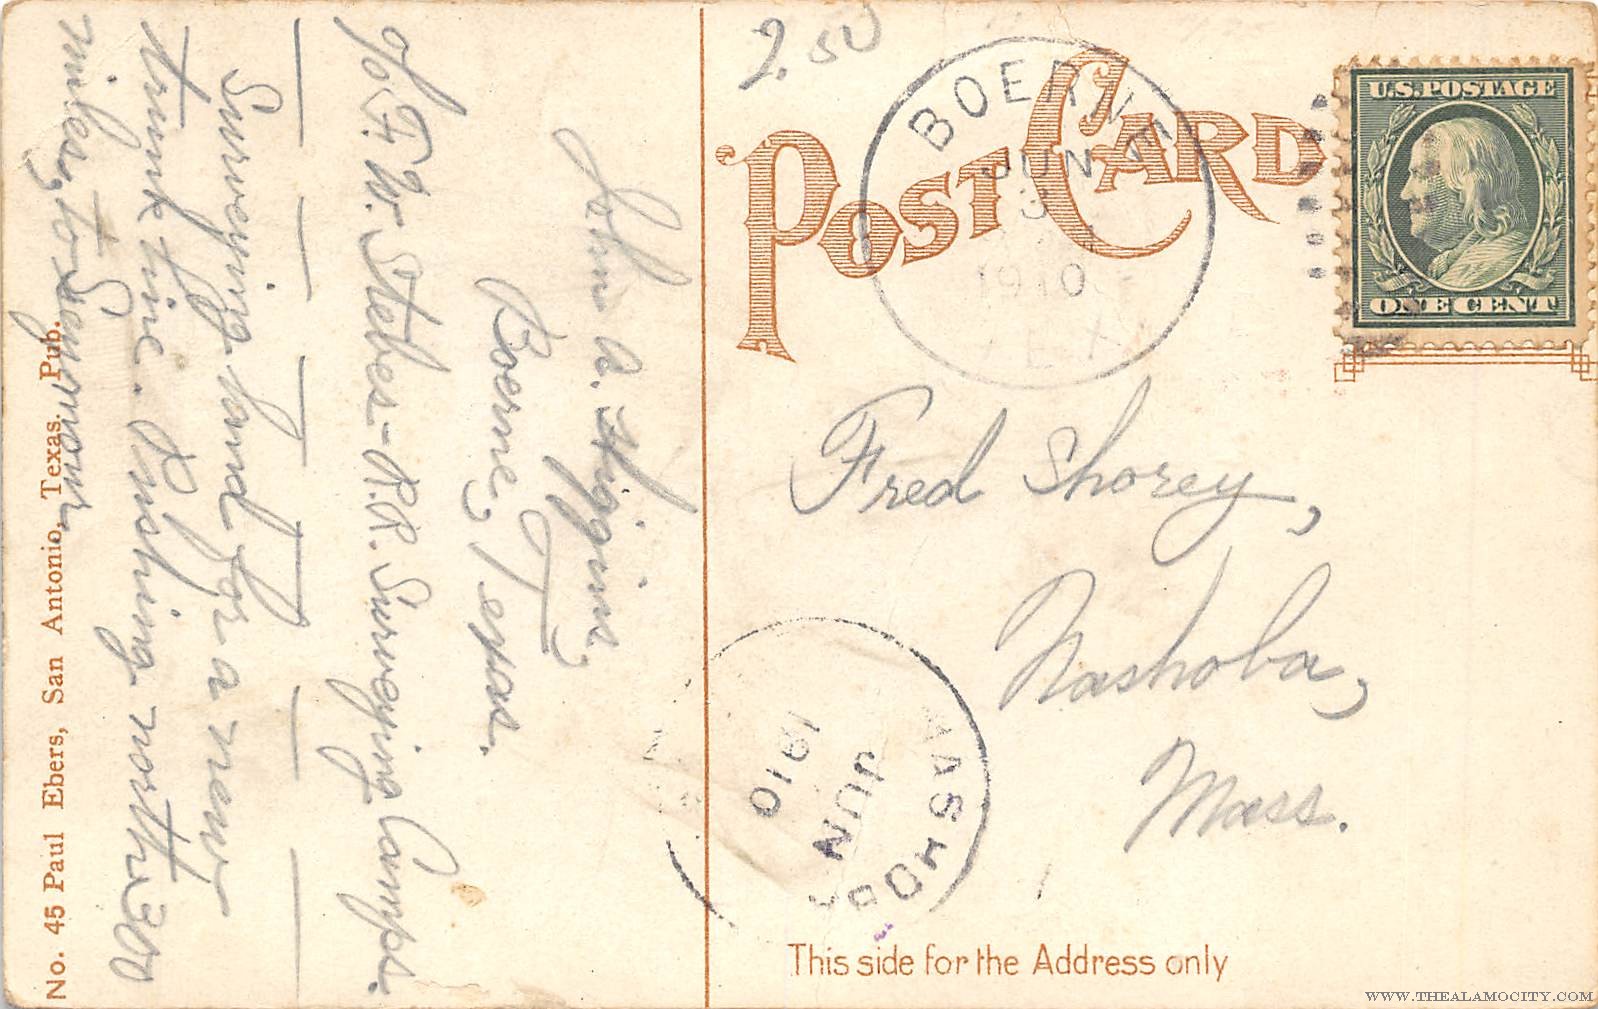 2.50
POST CARD
BOERNE
JUN
3
1910
TEX
U.S. POSTAGE
ONE CENT
Fred Shorey,
Nashoba,
Mass.
NASHOBA
JUN
1910
This side for the Address only
John A. Higgins,
Boerne, Texas.
℅ F. W. Steber - R.R. Surveying Camps.
Surveying hard for a new
trunk line. Rushing north 300
miles, to
No. 45 Paul Ebers, San Antonio, Texas. Pub.
WWW.THEALAMOCITY.COM